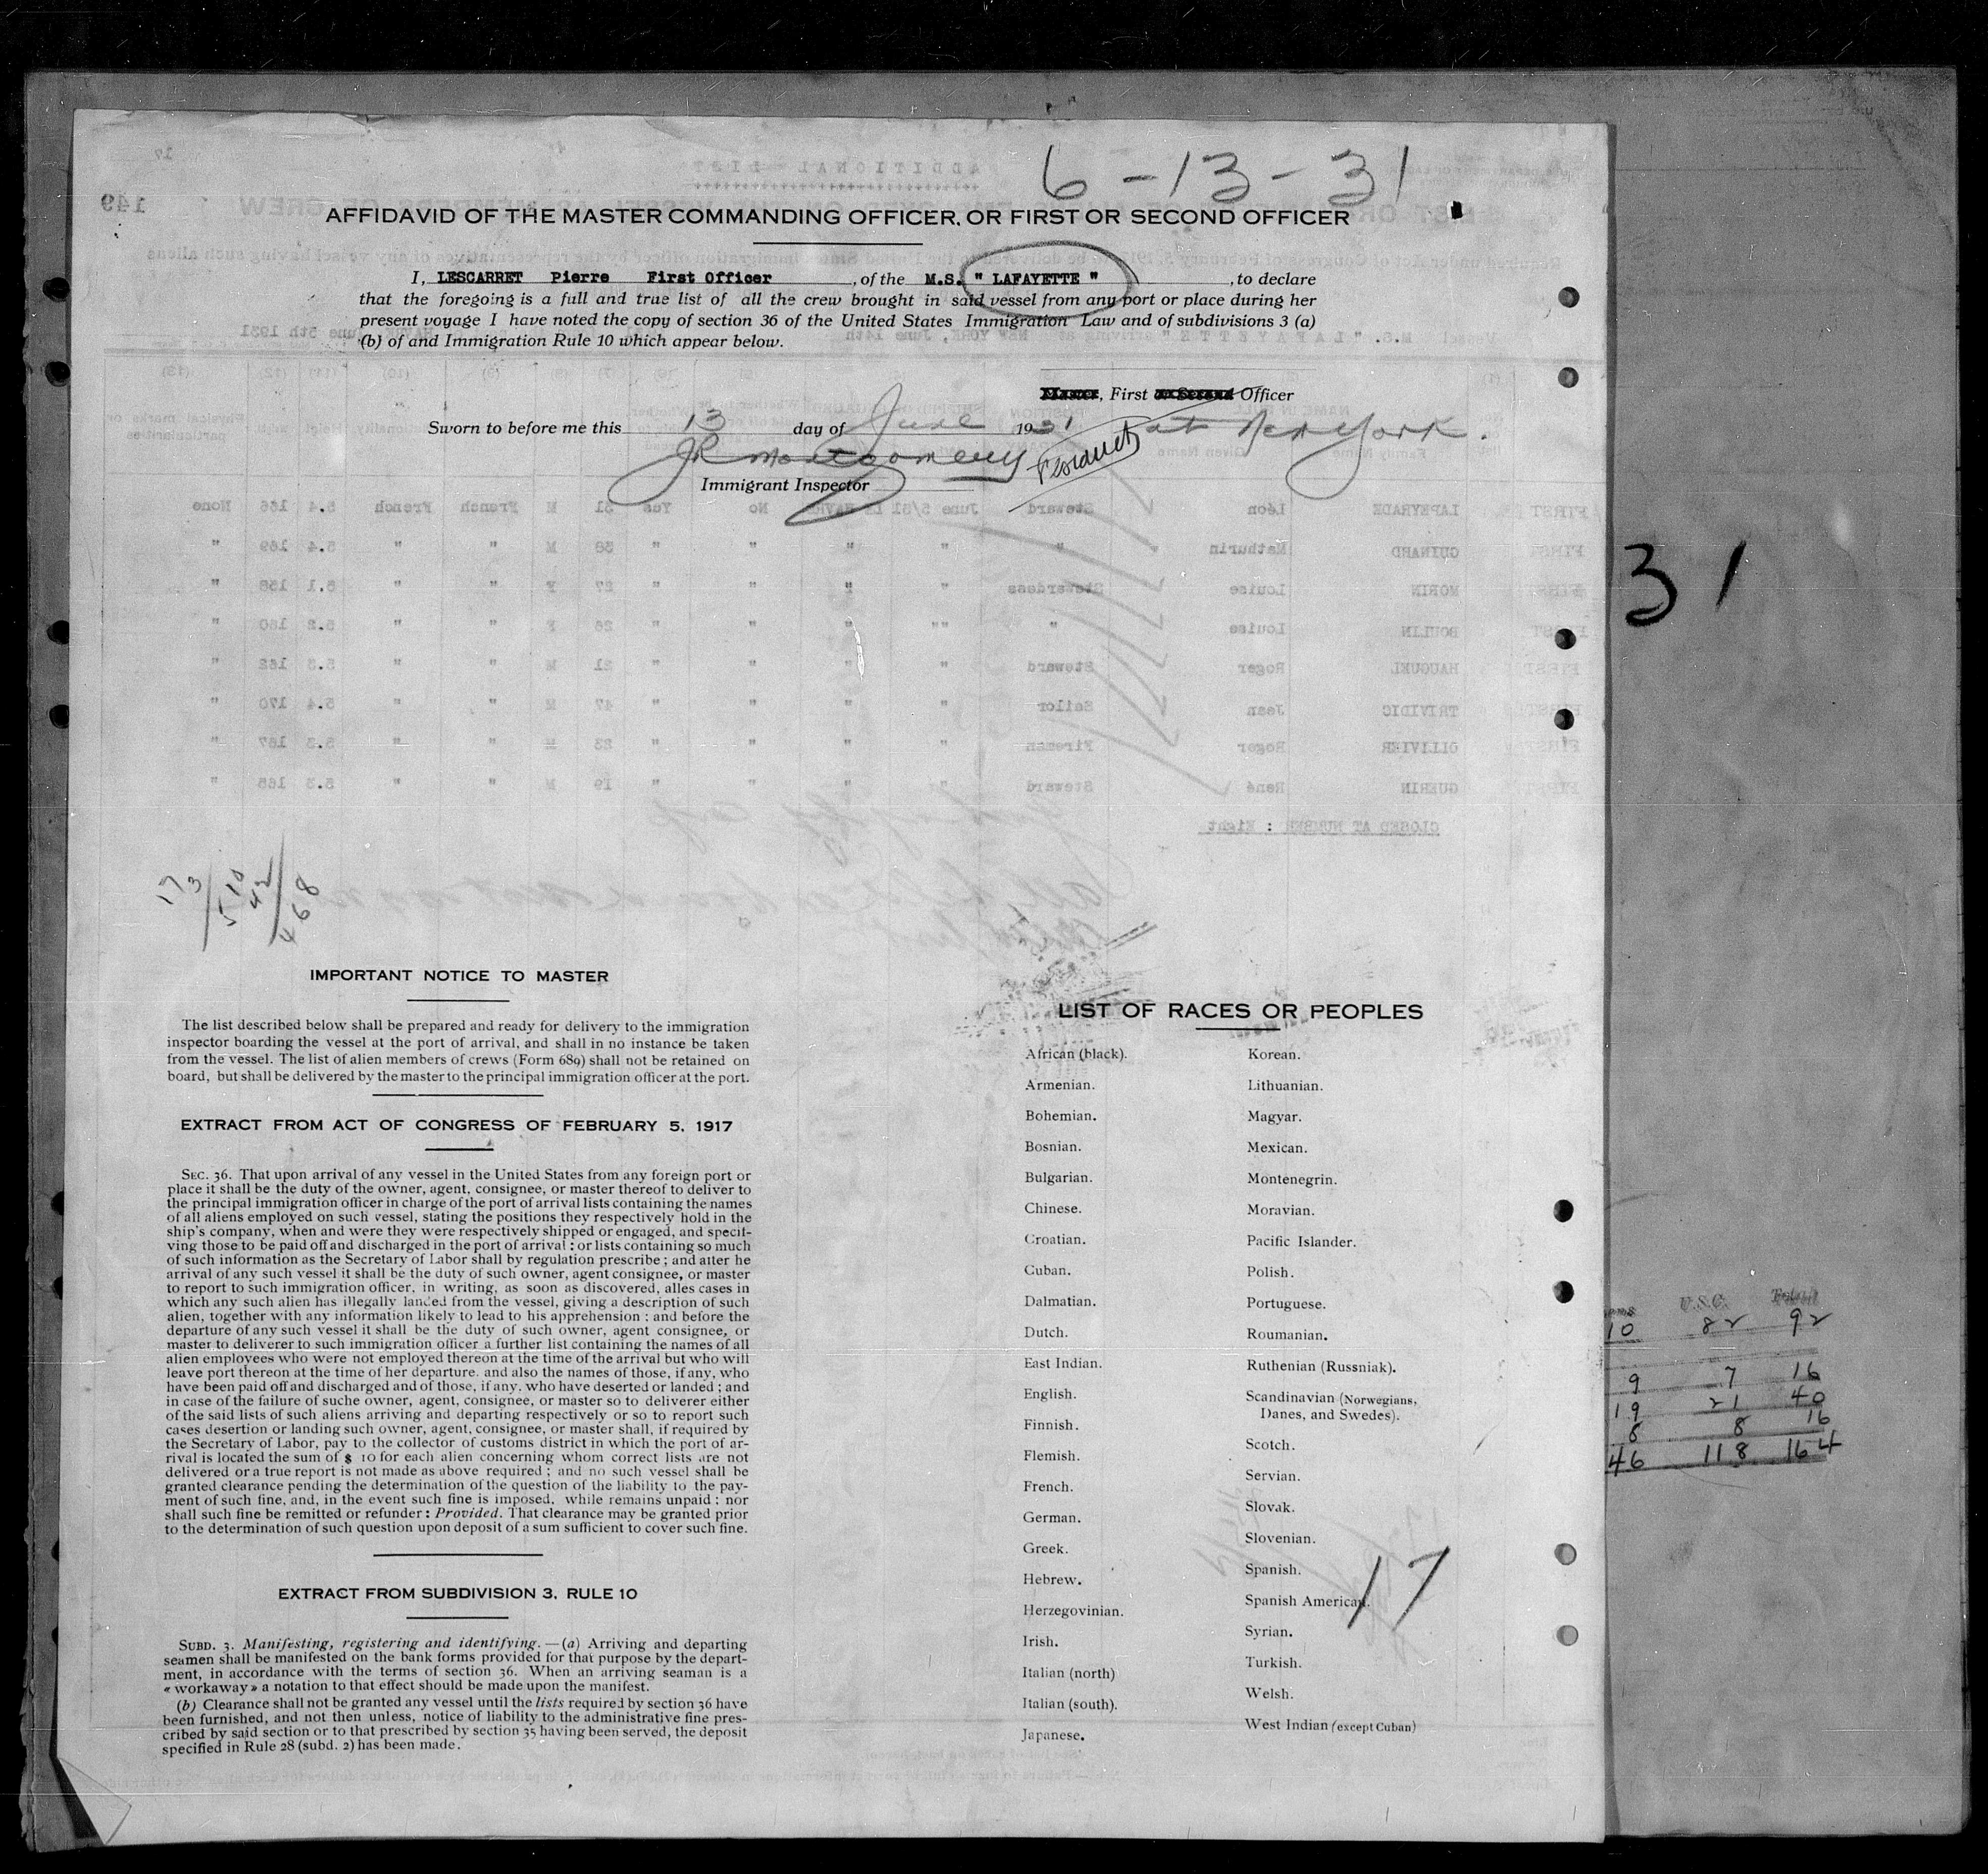 6-13-31
AFFIDAVID OF THE MASTER COMMANDING OFFICER, OR FIRST OR SECOND OFFICER
I, LESCARRET Pierre First Officer, of the M.S. " LAFAYETTE ", to declare
that the foregoing is a full and true list of all the crew brought in said vessel from any port or place during her
present voyage I have noted the copy of section 36 of the United States Immigration Law and of subdivisions 3 (a)
(b) of and Immigration Rule 10 which appear below.
Master, First or Second Officer
Sworn to before me this 13 day of June 1931 at New York.
JR Montgomery
Immigrant Inspector
31
17 3/5 10
42/468
IMPORTANT NOTICE TO MASTER
The list described below shall be prepared and ready for delivery to the immigration
inspector boarding the vessel at the port of arrival, and shall in no instance be taken
from the vessel. The list of alien members of crews (Form 689) shall not be retained on
board, but shall be delivered by the master to the principal immigration officer at the port.
EXTRACT FROM ACT OF CONGRESS OF FEBRUARY 5, 1917
SEC. 36. That upon arrival of any vessel in the United States from any foreign port or
place it shall be the duty of the owner, agent, consignee, or master thereof to deliver to
the principal immigration officer in charge of the port of arrival lists containing the names
of all aliens employed on such vessel, stating the positions they respectively hold in the
ship's company, when and were they were respectively shipped or engaged, and specil-
ving those to be paid off and discharged in the port of arrival : or lists containing so much
of such information as the Secretary of Labor shall by regulation prescribe ; and atter he
arrival of any such vessel it shall be the duty of such owner, agent consignee, or master
to report to such immigration officer, in writing, as soon as discovered, alles cases in
which any such alien has illegally landed from the vessel, giving a description of such
alien, together with any information likely to lead to his apprehension : and before the
departure of any such vessel it shall be the duty of such owner, agent consignee, or
master to deliverer to such immigration officer a further list containing the names of all
alien employees who were not employed thereon at the time of the arrival but who will
leave port thereon at the time of her departure. and also the names of those, if any, who
have been paid off and discharged and of those, if any, who have deserted or landed ; and
in case of the failure of suche owner, agent, consignee, or master so to deliverer either
of the said lists of such aliens arriving and departing respectively or so to report such
cases desertion or landing such owner, agent, consignee, or master shall, if required by
the Secretary of Labor, pay to the collector of customs district in which the port of ar-
rival is located the sum of $ 10 for each alien concerning whom correct lists are not
delivered or a true report is not made as above required ; and no such vessel shall be
granted clearance pending the determination of the question of the liability to the pay-
ment of such fine, and, in the event such fine is imposed, while remains unpaid ; nor
shall such fine be remitted or refunder : Provided. That clearance may be granted prior
to the determination of such question upon deposit of a sum sufficient to cover such fine.
EXTRACT FROM SUBDIVISION 3, RULE 10
SUBD. 3. Manifesting, registering and identifying. — (a) Arriving and departing
seamen shall be manifested on the bank forms provided for that purpose by the depart-
ment, in accordance with the terms of section 36. When an arriving seaman is a
« workaway » a notation to that effect should be made upon the manifest.
(b) Clearance shall not be granted any vessel until the lists required by section 36 have
been furnished, and not then unless, notice of liability to the administrative fine pres-
cribed by said section or to that prescribed by section 35 having been served, the deposit
specified in Rule 28 (subd. 2) has been made.
LIST OF RACES OR PEOPLES
African (black).
Armenian.
Bohemian.
Bosnian.
Bulgarian.
Chinese.
Croatian.
Cuban.
Dalmatian.
Dutch.
East Indian.
English.
Finnish.
Flemish.
French.
German.
Greek.
Hebrew.
Herzegovinian.
Irish.
Italian (north)
Italian (south).
Japanese.
Korean.
Lithuanian.
Magyar.
Mexican.
Montenegrin.
Moravian.
Pacific Islander.
Polish.
Portuguese.
Roumanian.
Ruthenian (Russniak).
Scandinavian (Norwegians,
Danes, and Swedes).
Scotch.
Servian.
Slovak.
Slovenian.
Spanish.
Spanish American.
Syrian.
Turkish.
Welsh.
West Indian (except Cuban)
17
U.S.C. Total
10 82 92
9 7 16
19 21 40
8 8 16
46 118 164